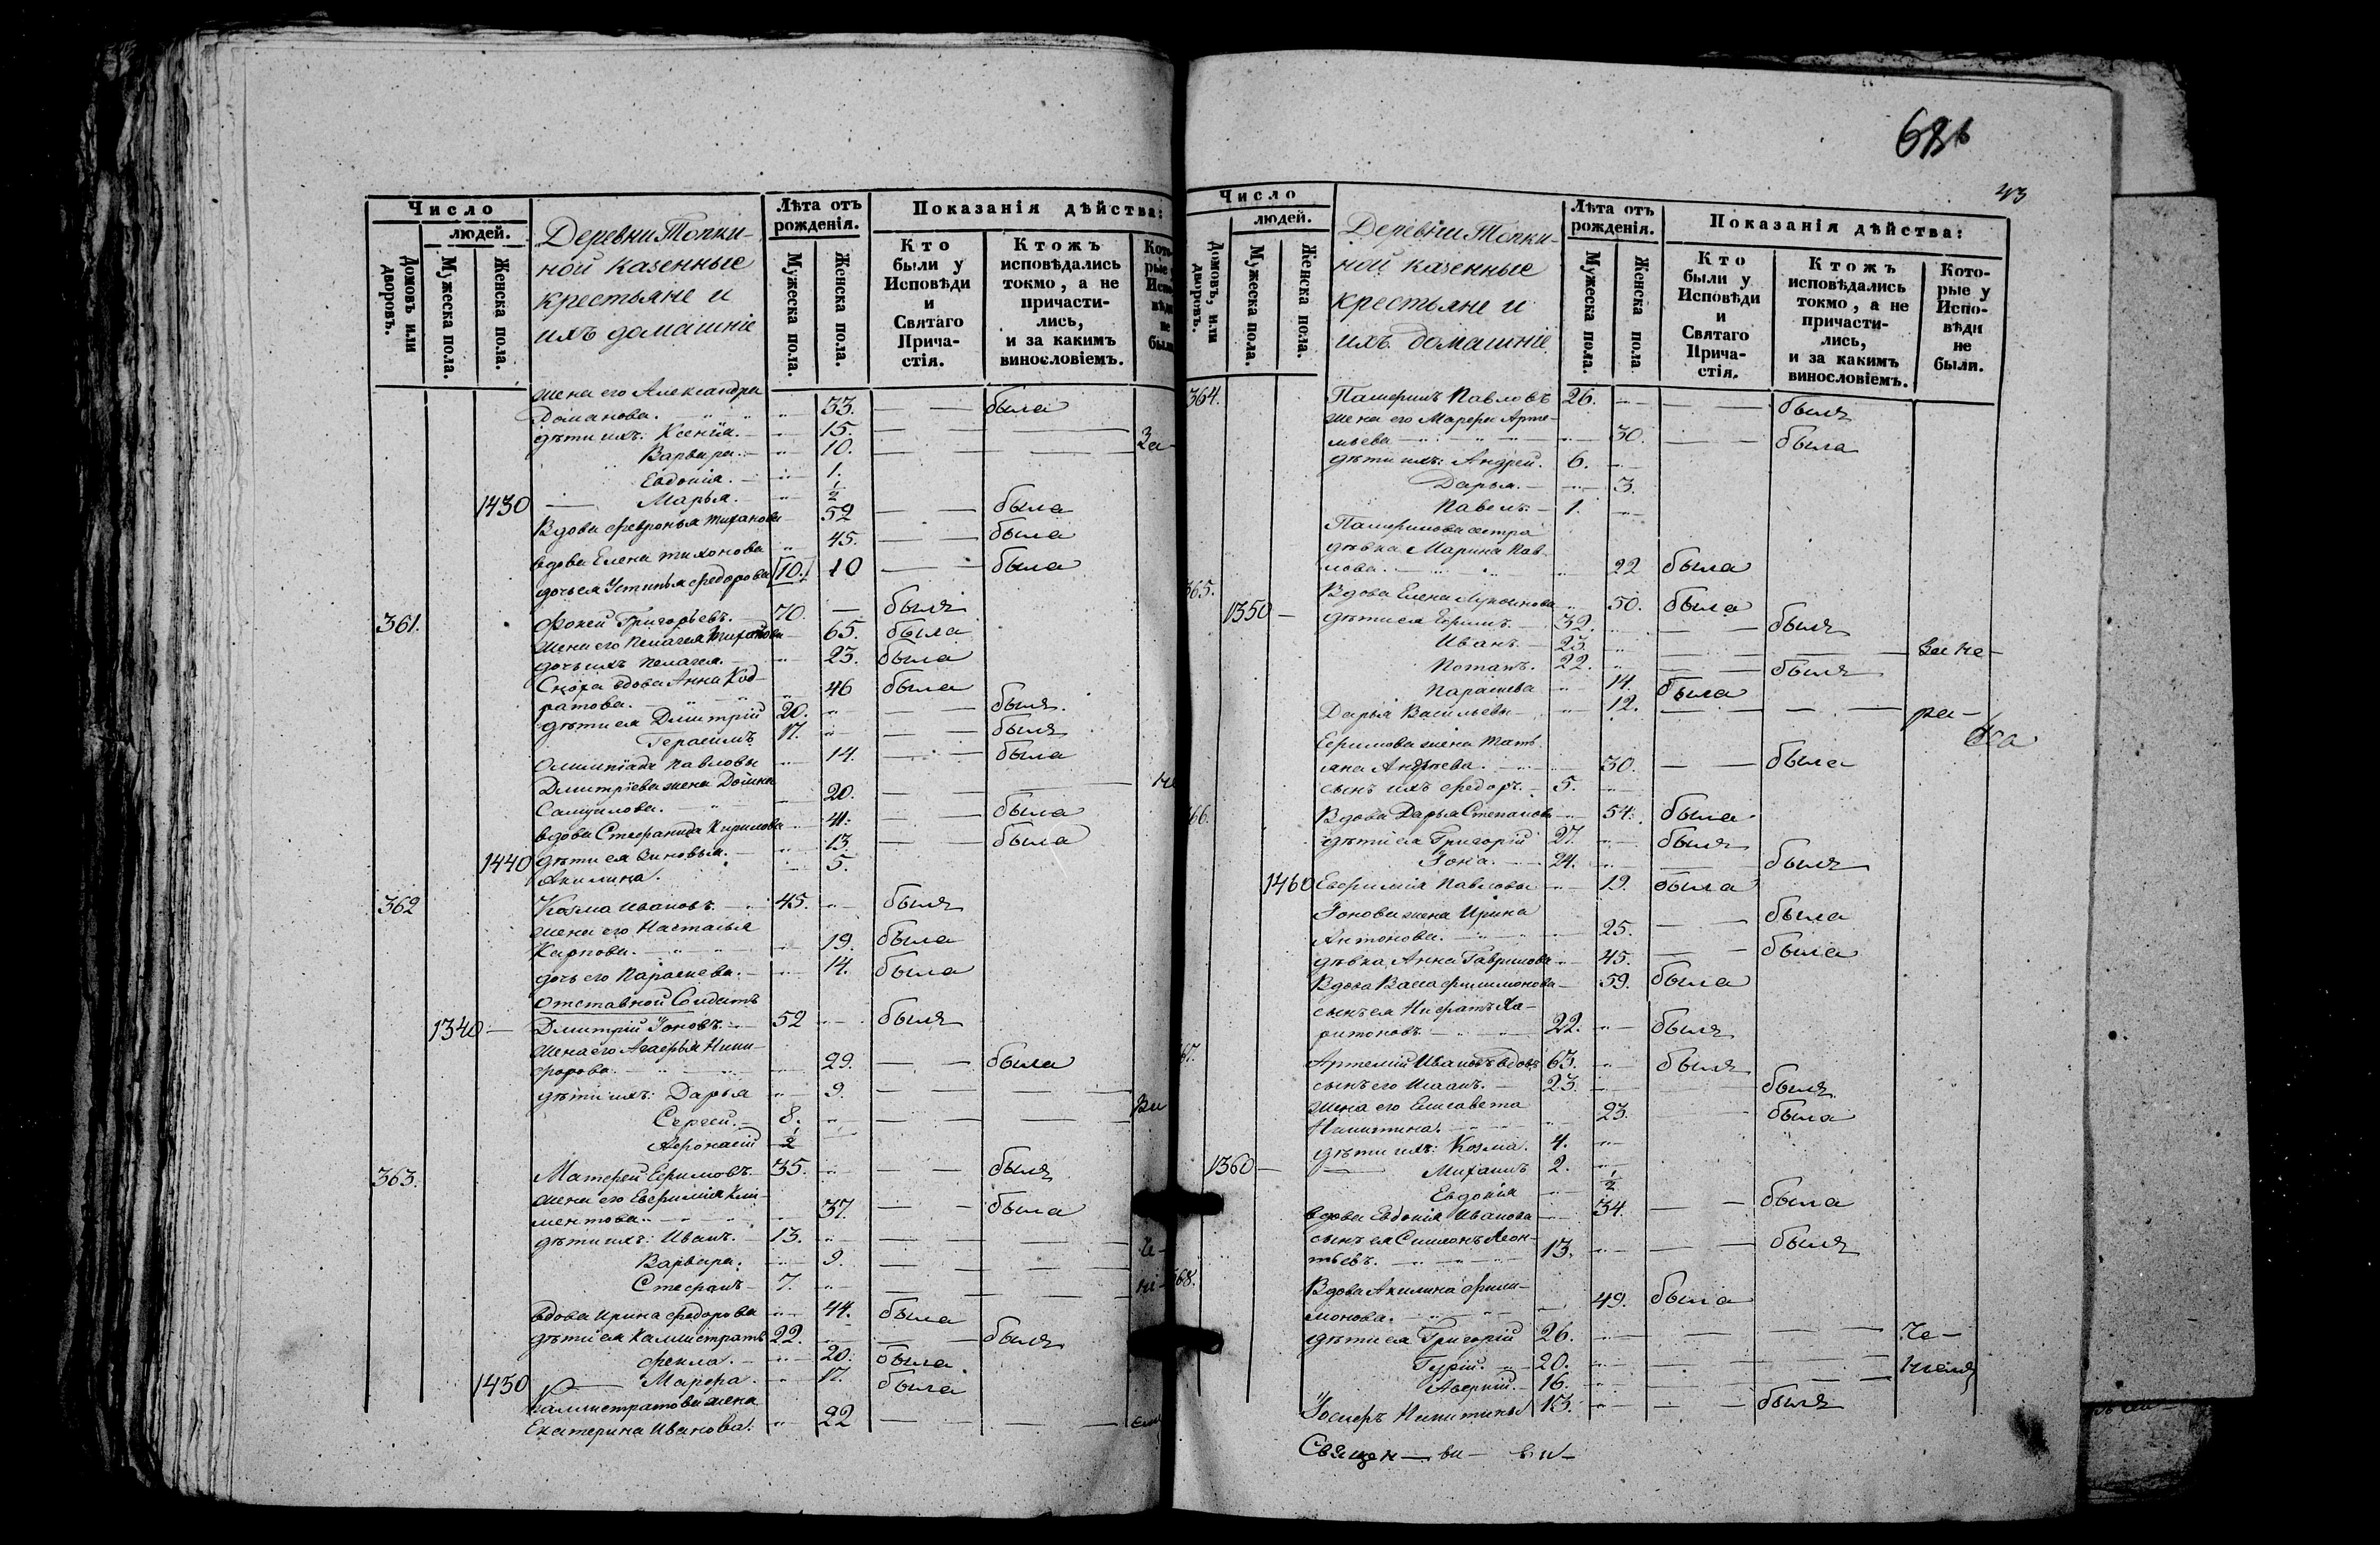 Число
людей.
Домовъ или дворовъ.
Мужеска пола.
Женска пола.
Деревни Топки-
ной казенные
крестьяне и
ихъ домашніе
Лѣта отъ рожденія.
Мужеска пола.
Женска пола.
Показанія дѣйства:
Кто были у Исповѣди и Святаго Прича-стія.
Ктожъ исповѣдались токмо, а не причасти-лись, и за какимъ винословіемъ.
жена его Александра
Романова. 33. была
дѣти ихъ: Ксенія. 15.
Варвара. 10. За-
Евдокія. 1.
1430 Марья. 1/2
Вдова Февронья 52 была
вдова Елена Тихонова 45. была
дочь ея Устинья Федорова 10. 10 была
361. Фокей Григорьевъ. 70. былъ
жена его Пелагея 65. была
дочь ихъ Пелагея. 23. была
вдова Анна Код-
ратова. 46 была
дѣти ея Дмитрій 20. былъ
Герасимъ 17. былъ
Олимпіада Павловы 14. была
Дмитріева жена Домна
Самуилова. 20.
вдова Стефанида Кирилова 41. была
1440 дѣти ея Зиновья. 13. была
Акилина. 5.
362 Козма Ивановъ. 45. былъ
жена его Настасья
Карпова. 19. была
дочь его Параскева. 14. была
Отставной Солдатъ
1340 Дмитрій Іоновъ. 52 былъ
жена его Агафья Ники-
форова. 29. была
дѣти ихъ: Дарья 9.
Сергей. 8.
Афонасій 1/2
363. Матфей Ефимовъ 35. былъ
жена его Евфимія Кли-
ментова. 37. была
дѣти ихъ: Иванъ. 13.
Варвара. 9.
Стефанъ 7.
вдова Ирина Федорова 44. была
дѣти ея Каллистратъ 22. былъ
Фекла. 20. была
1450 Марфа. 17. была
Каллистратова жена
Екатерина Иванова. 22
43
Число
людей.
Домовъ, или дворовъ.
Мужеска пола.
Женска пола.
Деревни Топки-
ной казенные
крестьяне и
ихъ домашніе
Лѣта отъ рожденія.
Мужеска пола.
Женска пола.
Показанія дѣйства:
Кто были у Исповѣди и Святаго Прича-стія.
Ктожъ исповѣдались токмо, а не причасти-лись, и за какимъ винословіемъ.
Кото-рые у Испо-вѣди не были.
364. Павловъ 26. былъ
жена его Марфа Арте-
мьева 30. была
дѣти ихъ: Андрей. 6.
Дарья. 3.
Павелъ. 1.
сестра
дѣвка Марина Пав-
лова. 22 была
365. Вдова Елена 50. была
1350 дѣти ея Ефимъ. 32. былъ
Иванъ. 23. За не-
Потапъ. 22. былъ
Параскева 14. была
Дарья Васильевы 12. ра-
Ефимова жена Тать-
яна Андреева. 30. была
сынъ ихъ Федоръ. 5.
66. Вдова Дарья Степанова 54. была
дѣти ея Григорій 27. былъ
Іона. 24. былъ
1460 Евфимія Павловы 19. была
Іонова жена Ирина
Антонова. 25. была
дѣвка Анна Гаврилова 45. была
Вдова Васса Филимонова 59. была
сынъ ея Ха-
ритоновъ. 22. былъ
67. Артемій Ивановъ вдовъ 63. былъ
сынъ его 23. былъ
жена его Елисавета
Никитина. 23. была
дѣти ихъ: Козма. 4.
1360 Михаилъ 2.
Евдокія 1/2
вдова Евдокія Иванова 34. была
сынъ ея Симеонъ Леон-
тьевъ. 13. былъ
68. Вдова Акилина Фили-
монова. 49. была
дѣти ея Григорій 26.
Гурій. 20.
Аверкій. 16.
Іосифъ Никитины 13. былъ
Священ